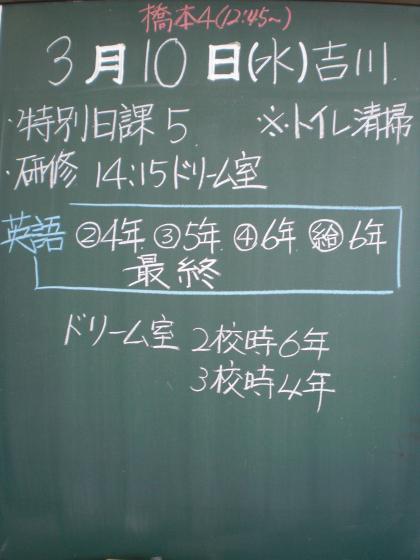 橋本4(12:45~)
3月10日(水)吉川
・特別日課5 ※トイレ清掃
・研修 14:15ドリーム室
英語 ②4年 ③5年 ④6年 ㊉6年
最終
ドリーム室 2校時6年
3校時4年